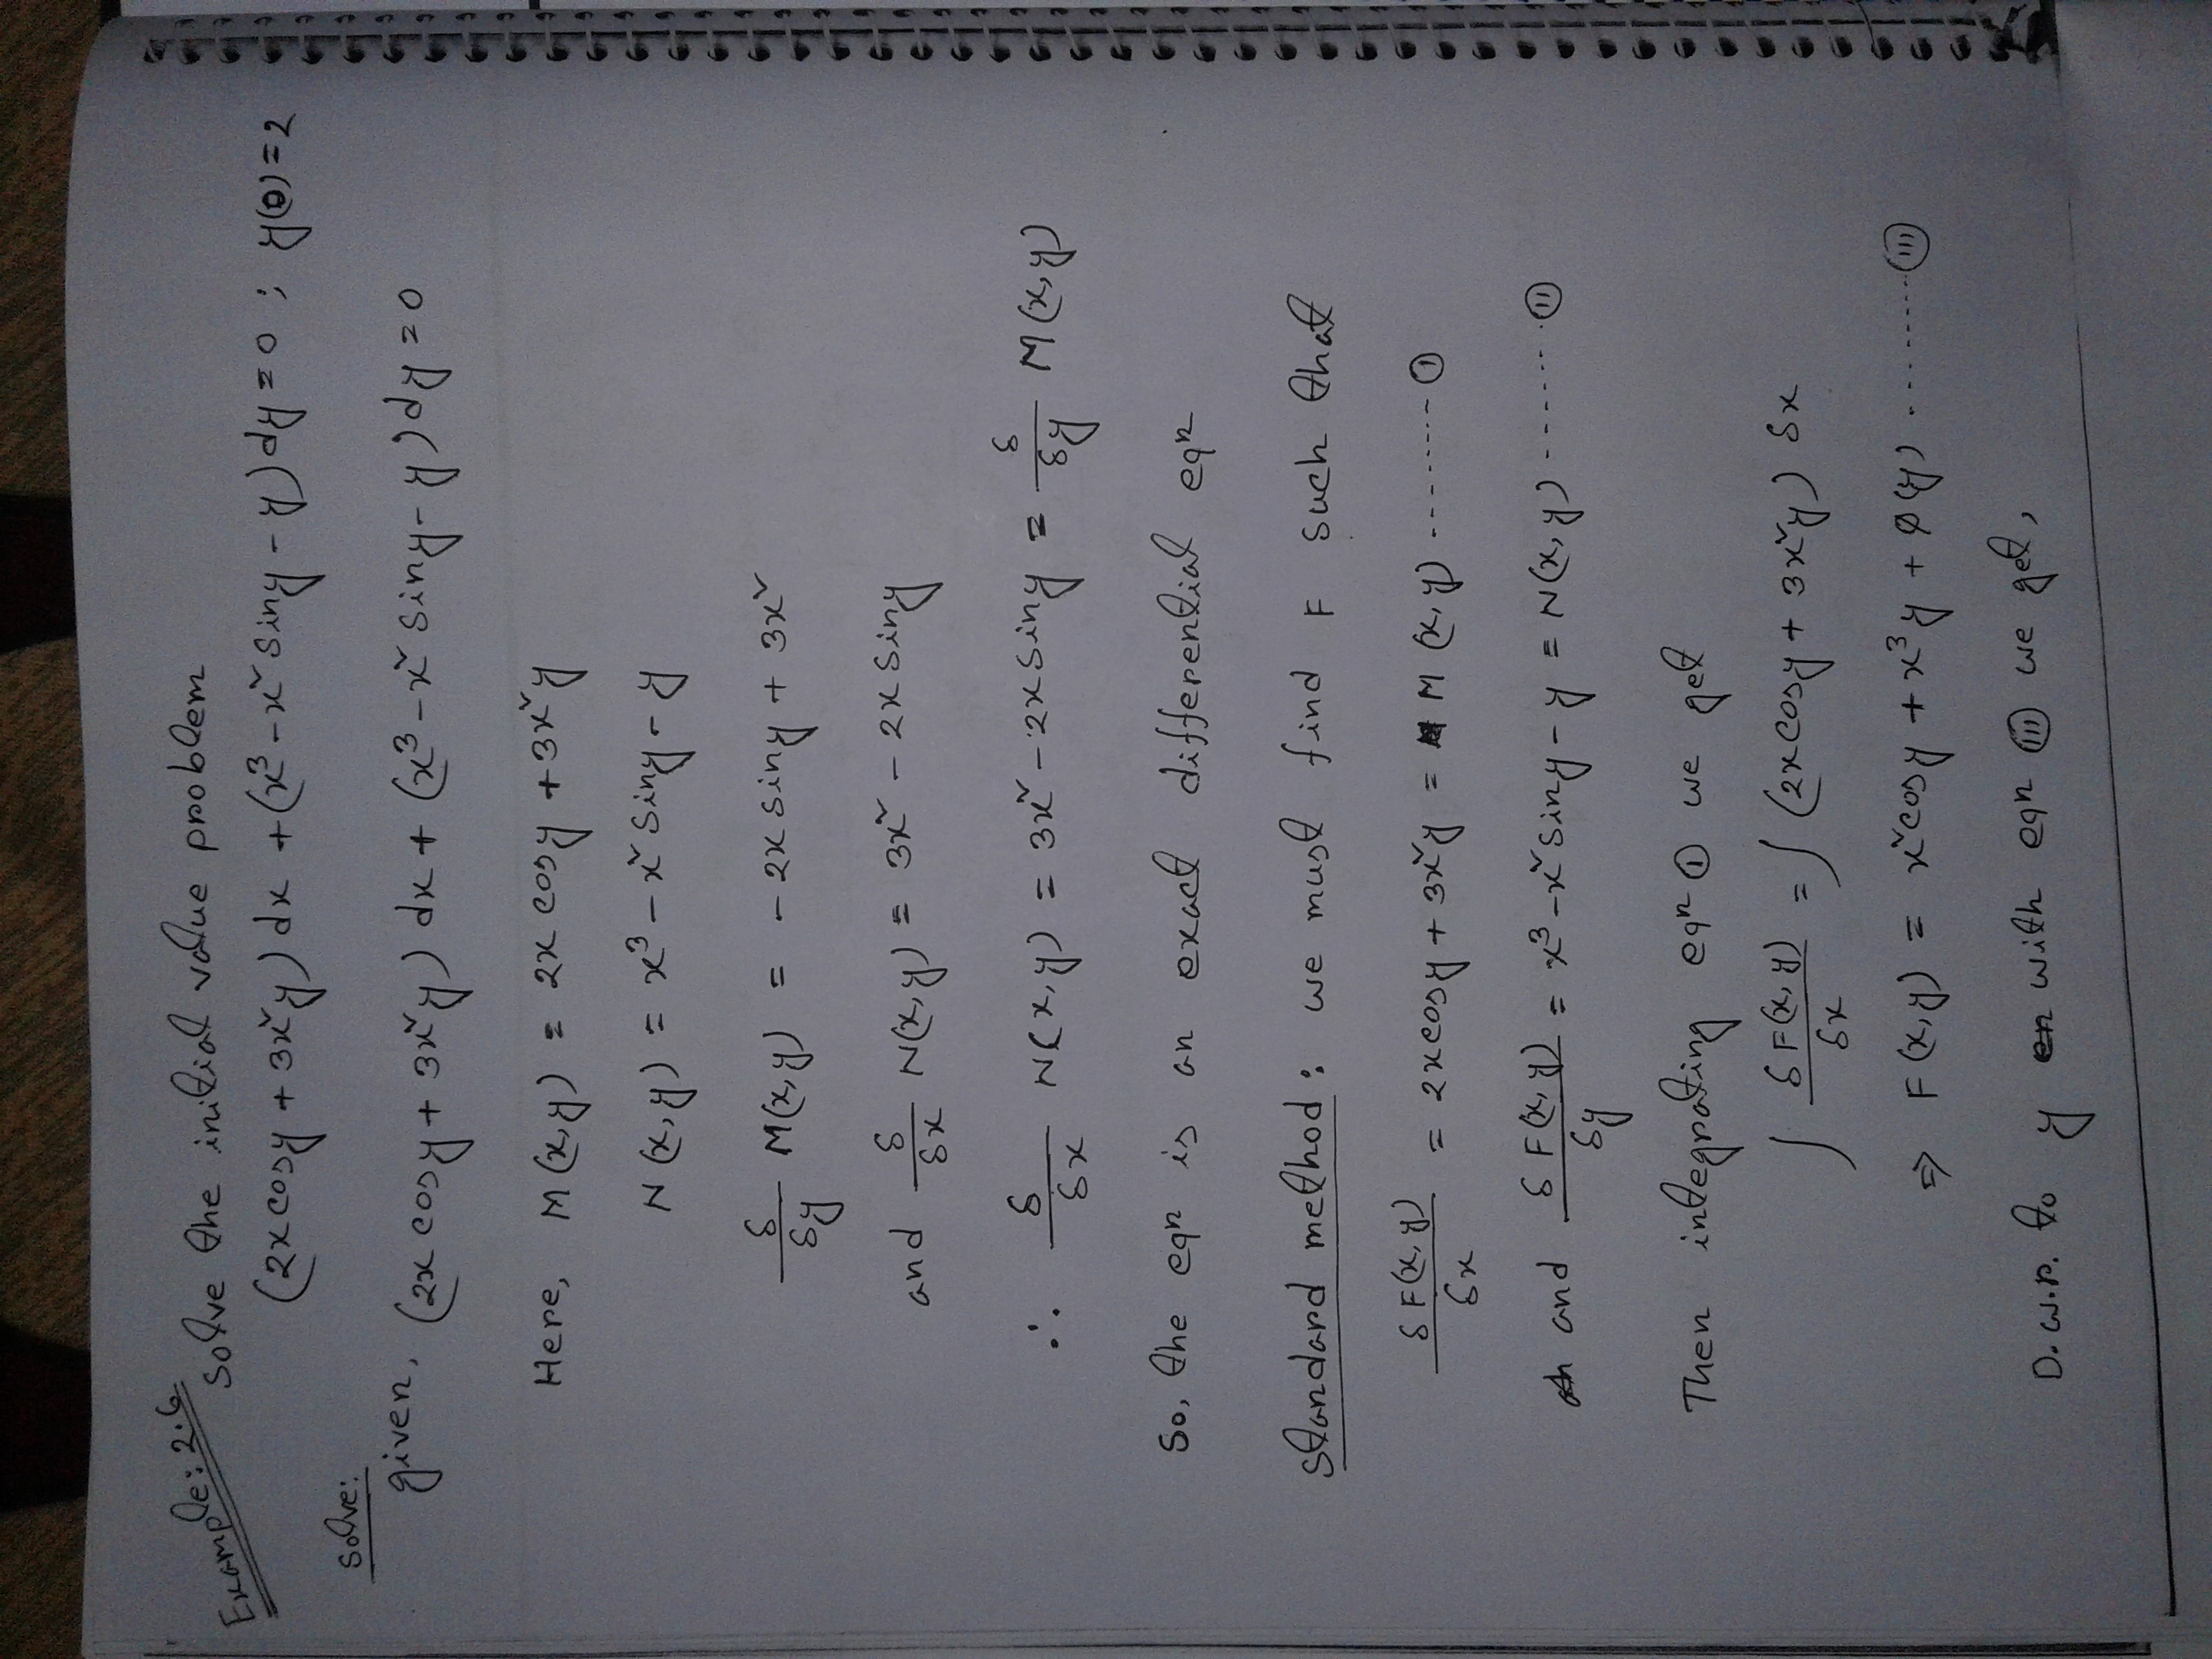 Example: 2.6
Solve the initial value problem
(2x cosy + 3x²y) dx + (x³ - x² siny - y) dy = 0 ; y(0) = 2
Solve:
given, (2x cosy + 3x²y) dx + (x³ - x² siny - y) dy = 0
Here, M(x,y) = 2x cosy + 3x²y
N(x,y) = x³ - x² siny - y
δ/δy M(x,y) = - 2x siny + 3x²
and δ/δx N(x,y) = 3x² - 2x siny
∴ δ/δx N(x,y) = 3x² - 2x siny = δ/δy M(x,y)
So, the eqn is an exact differential eqn
Standard method: we must find F such that
δF(x,y)/δx = 2x cosy + 3x²y = M(x,y) -------- (i)
and δF(x,y)/δy = x³ - x² siny - y = N(x,y) ------- (ii)
Then integrating eqn (i) we get
∫ δF(x,y)/δx = ∫ (2x cosy + 3x²y) δx
⇒ F(x,y) = x² cosy + x³y + ∅(y) -------- (iii)
D.w.r. to y with eqn (iii) we get,